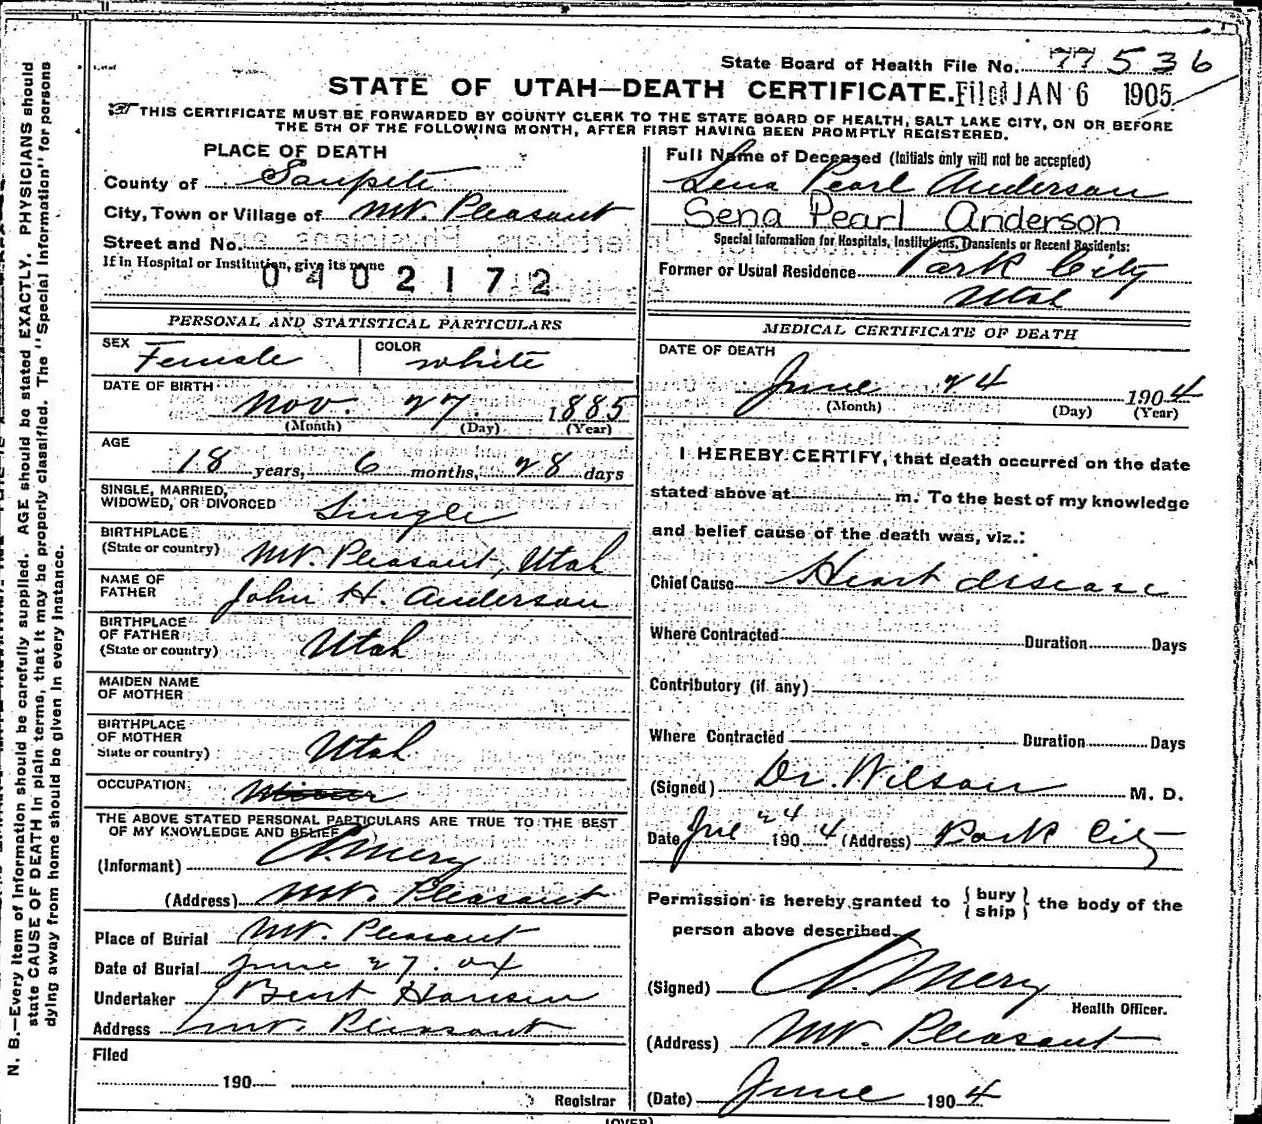 State Board of Health File No. 77536
STATE OF UTAH—DEATH CERTIFICATE. Filed JAN 6 1905
THIS CERTIFICATE MUST BE FORWARDED BY COUNTY CLERK TO THE STATE BOARD OF HEALTH, SALT LAKE CITY, ON OR BEFORE
THE 5TH OF THE FOLLOWING MONTH, AFTER FIRST HAVING BEEN PROMPTLY REGISTERED.
PLACE OF DEATH
County of Sanpete
City, Town or Village of Mt. Pleasant
Street and No.
If in Hospital or Institution, give its name
0402172
Full Name of Deceased (Initials only will not be accepted)
Sena Pearl Anderson
Sena Pearl Anderson
Special Information for Hospitals, Institutions, Transients or Recent Residents:
Former or Usual Residence Park City
Utah
PERSONAL AND STATISTICAL PARTICULARS
SEX Female COLOR white
DATE OF BIRTH Nov. 27. 1885
(Month) (Day) (Year)
AGE 18 years, 6 months, 28 days
SINGLE, MARRIED,
WIDOWED, OR DIVORCED Single
BIRTHPLACE
(State or country) Mt. Pleasant, Utah
NAME OF
FATHER John H. Anderson
BIRTHPLACE
OF FATHER
(State or country) Utah
MAIDEN NAME
OF MOTHER
BIRTHPLACE
OF MOTHER
State or country) Utah
OCCUPATION
THE ABOVE STATED PERSONAL PARTICULARS ARE TRUE TO THE BEST
OF MY KNOWLEDGE AND BELIEF
(Informant)
(Address) Mt. Pleasant
Place of Burial Mt. Pleasant
Date of Burial June 27. 04
Undertaker Bent Hansen
Address Mt. Pleasant
Filed
190
Registrar
MEDICAL CERTIFICATE OF DEATH
DATE OF DEATH
June 24 1904
(Month) (Day) (Year)
I HEREBY CERTIFY, that death occurred on the date
stated above at m. To the best of my knowledge
and belief cause of the death was, viz.:
Chief Cause Heart disease
Where Contracted Duration Days
Contributory (if any)
Where Contracted Duration Days
(Signed) Dr. Wilson M. D.
Date June 24 1904 (Address) Park City
Permission is hereby granted to { bury ship } the body of the
person above described.
(Signed)
Health Officer.
(Address) Mt. Pleasant
(Date) June 1904
(OVER)
N. B.—Every item of information should be carefully supplied. AGE should be stated EXACTLY. PHYSICIANS should
state CAUSE OF DEATH in plain terms, that it may be properly classified. The "Special Information" for persons
dying away from home should be given in every instance.